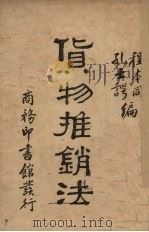 程本固
孔士諤
編
貨物推銷法
商務印書館發行